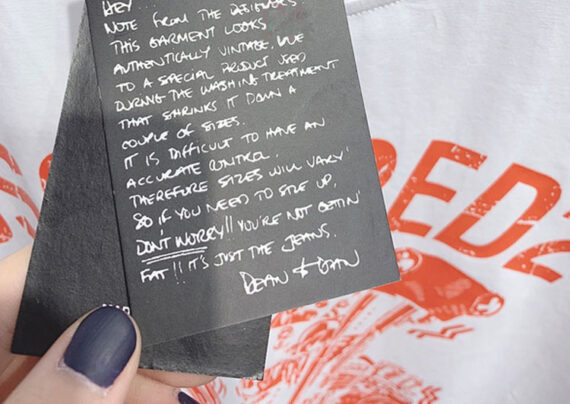 HEY...
NOTE FROM THE DESIGNERS
THIS GARMENT LOOKS
AUTHENTICALLY VINTAGE, DUE
TO A SPECIAL PRODUCT USED
DURING THE WASHING TREATMENT
THAT SHRINKS IT DOWN A
COUPLE OF SIZES.
IT IS DIFFICULT TO HAVE AN
ACCURATE CONTROL.
THEREFORE SIZES WILL VARY"
SO, IF YOU NEED TO SIZE UP,
DON'T WORRY!! YOU'RE NOT GETTIN'
FAT!! IT'S JUST THE JEANS.
DEAN & DAN
RED2